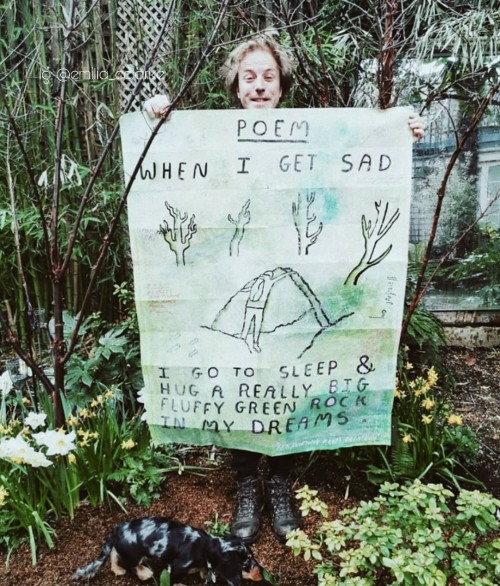 Ig @emilia_edarke
POEM
WHEN I GET SAD
I GO TO SLEEP &
HUG A REALLY BIG
FLUFFY GREEN ROCK
IN MY DREAMS.